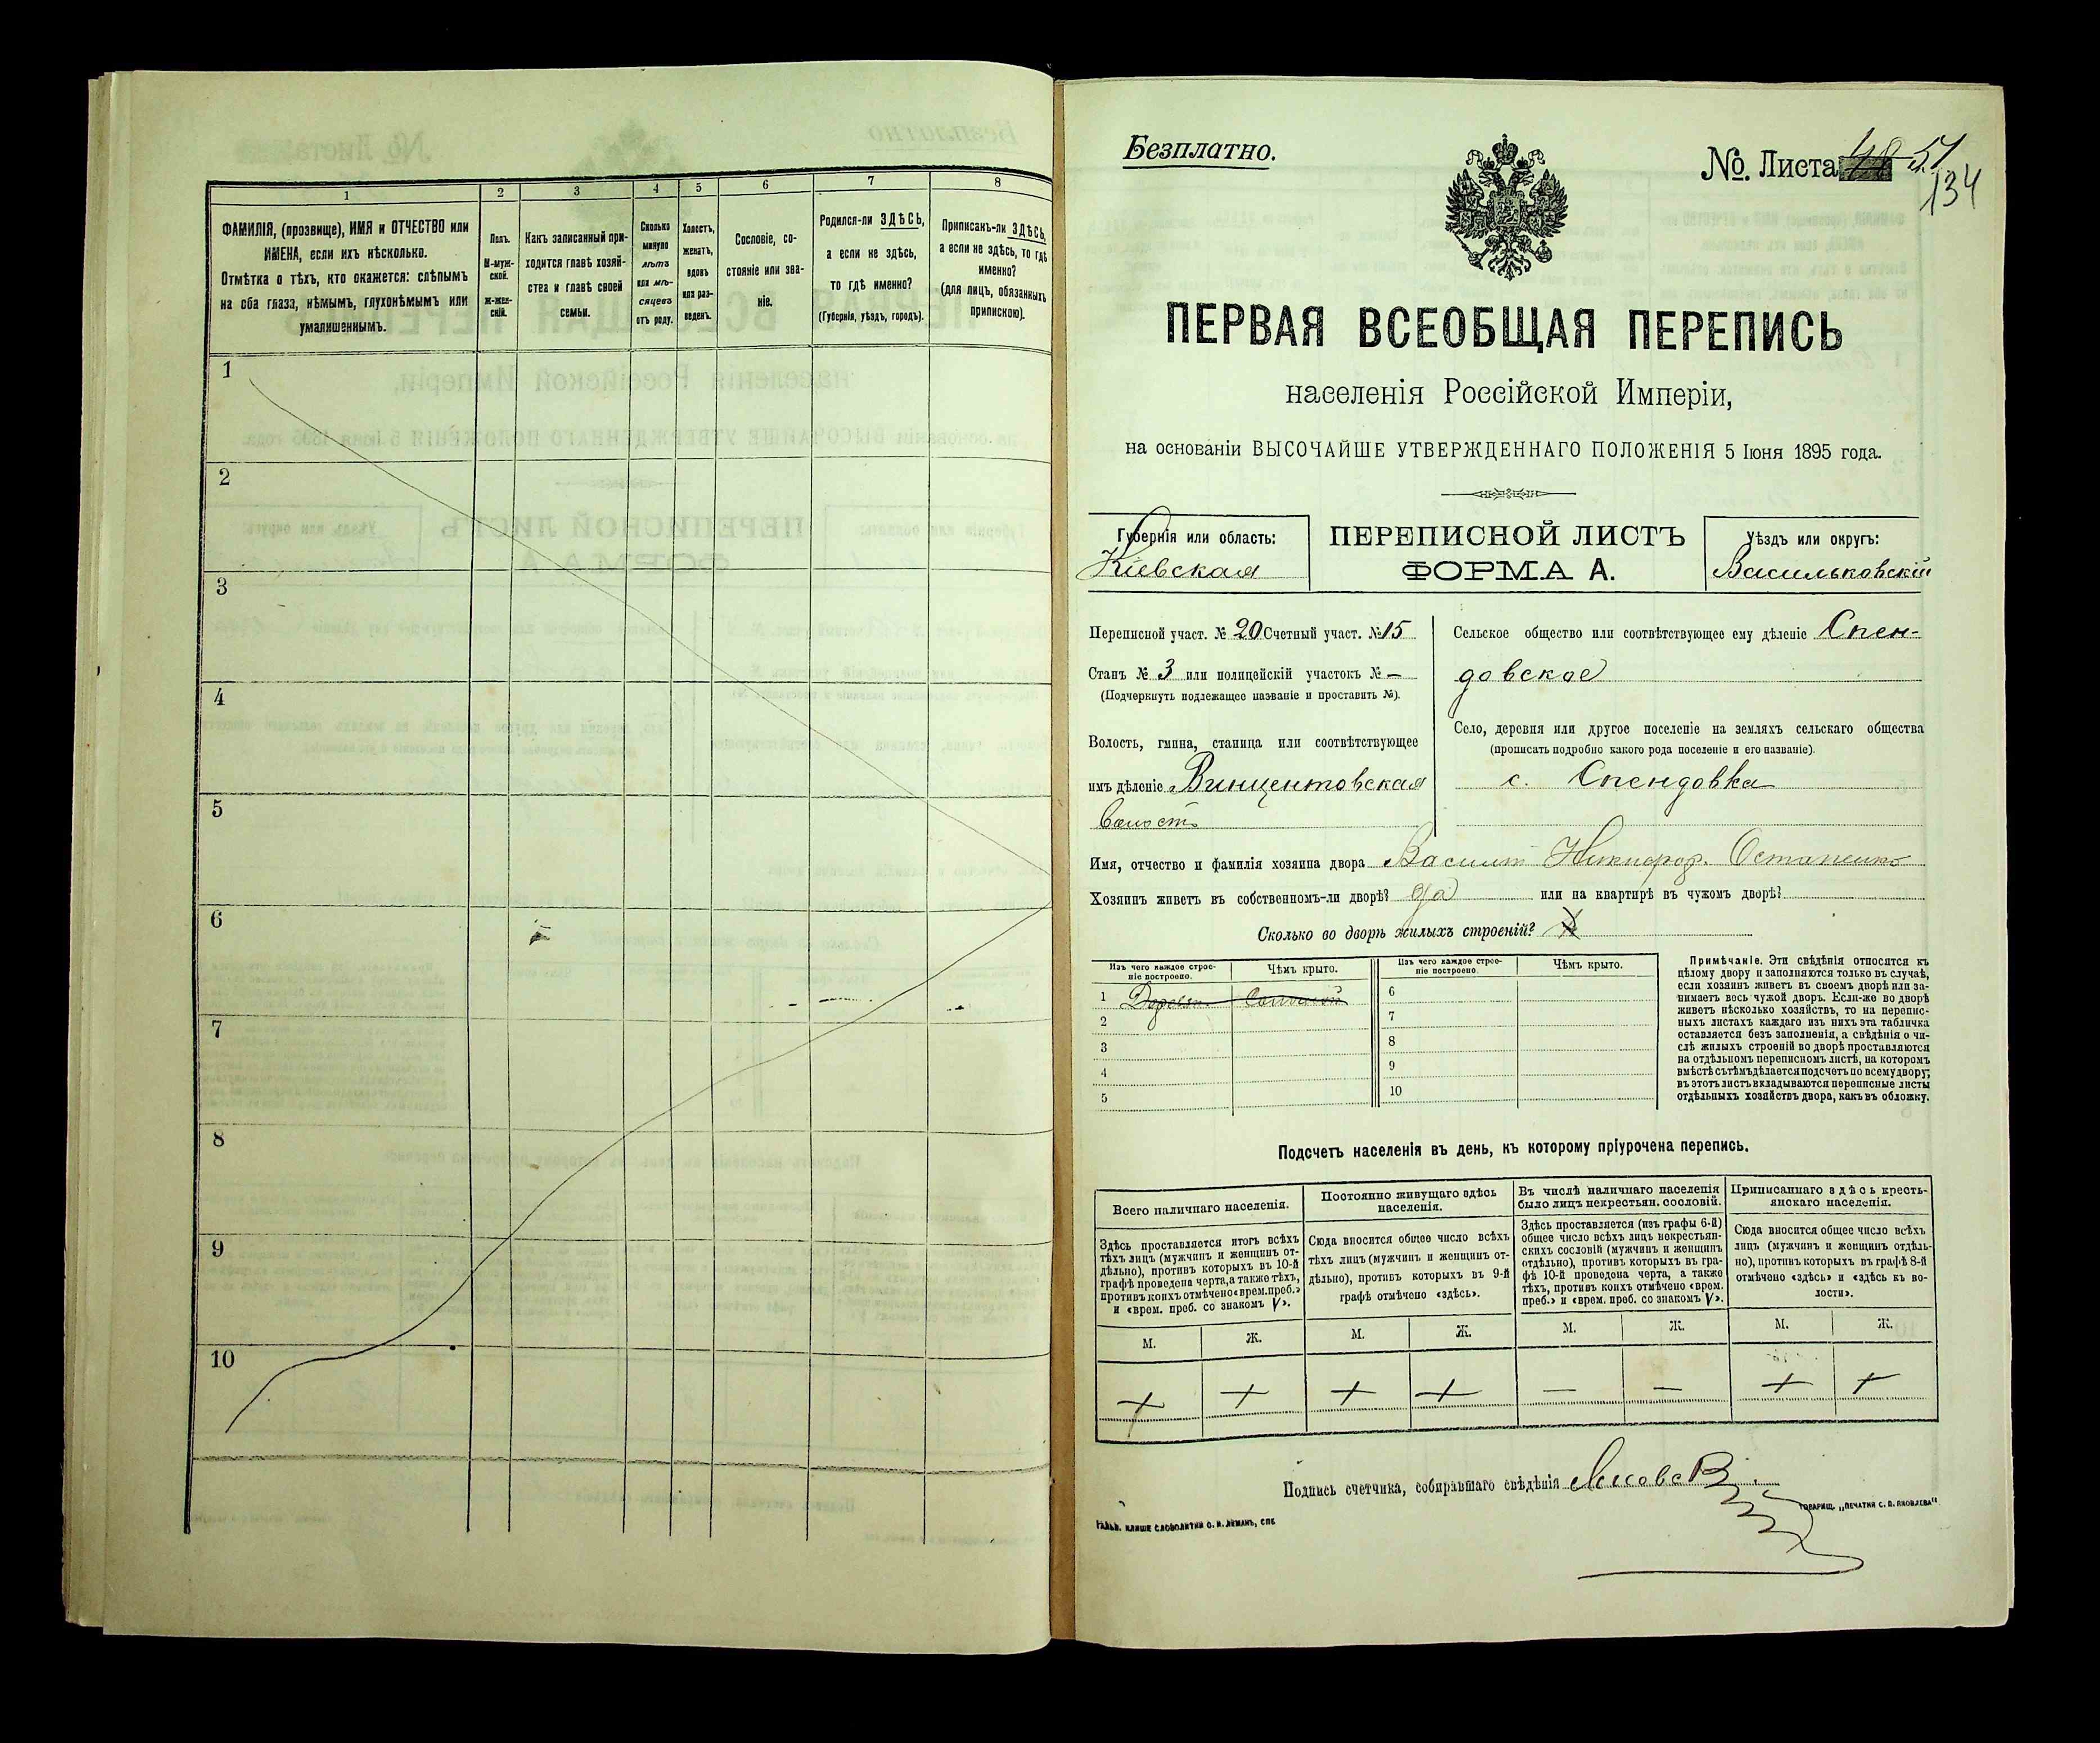 1
2
3
4
5
6
7
8
ФАМИЛІЯ, (прозвище), ИМЯ и ОТЧЕСТВО или
ИМЕНА, если ихъ нѣсколько.
Отмѣтка о тѣхъ, кто окажется: слѣпымъ
на оба глаза, нѣмымъ, глухонѣмымъ или
умалишеннымъ.
Полъ.
М-муж-
ской.
ж-жен-
скій.
Какъ записанный при-
ходится главѣ хозяй-
ства и главѣ своей
семьи.
Сколько
минуло
лѣтъ
или мѣ-
сяцевъ
отъ роду.
Холостъ,
женатъ,
вдовъ
или раз-
веденъ.
Сословіе, со-
стояніе или зва-
ніе.
Родился-ли ЗДѢСЬ,
а если не здѣсь,
то гдѣ именно?
(Губернія, уѣздъ, городъ).
Приписанъ-ли ЗДѢСЬ,
а если не здѣсь, то гдѣ
именно?
(для лицъ, обязанныхъ
припискою).
1
2
3
4
5
6
7
8
9
10
Безплатно.
№. Листа 48 51
134
ПЕРВАЯ ВСЕОБЩАЯ ПЕРЕПИСЬ
населенія Россійской Имперіи,
на основаніи ВЫСОЧАЙШЕ УТВЕРЖДЕННАГО ПОЛОЖЕНІЯ 5 Іюня 1895 года.
Губернія или область:
Кіевская
ПЕРЕПИСНОЙ ЛИСТЪ
ФОРМА А.
Уѣздъ или округъ:
Васильковскій
Переписной участ. № 20 Счетный участ. № 15
Станъ № 3 или полицейскій участокъ № —
(Подчеркнуть подлежащее названіе и проставить №).
Волость, гмина, станица или соотвѣтствующее
имъ дѣленіе Винцентовская
Волость
Сельское общество или соотвѣтствующее ему дѣленіе Спен-
довское
Село, деревня или другое поселеніе на земляхъ сельскаго общества
(прописать подробно какого рода поселеніе и его названіе).
с. Спендовка
Имя, отчество и фамилія хозяина двора Василій Никифор. Остапенко
Хозяинъ живетъ въ собственномъ-ли дворѣ? да или на квартирѣ въ чужомъ дворѣ?
Сколько во дворѣ жилыхъ строеній?
Изъ чего каждое строе-
ніе построено.
Чѣмъ крыто.
Изъ чего каждое строе-
ніе построено.
Чѣмъ крыто.
1 Деревян. Соломой
2
3
4
5
6
7
8
9
10
Примѣчаніе. Эти свѣдѣнія относятся къ
цѣлому двору и заполняются только въ случаѣ,
если хозяинъ живетъ въ своемъ дворѣ или за-
нимаетъ весь чужой дворъ. Если-же во дворѣ
живетъ нѣсколько хозяйствъ, то на перепис-
ныхъ листахъ каждаго изъ нихъ эта табличка
оставляется безъ заполненія, а свѣдѣнія о чи-
слѣ жилыхъ строеній во дворѣ проставляются
на отдѣльномъ переписномъ листѣ, на которомъ
вмѣстѣ съ тѣмъ дѣлается подсчетъ по всему двору;
въ этотъ листъ вкладываются переписные листы
отдѣльныхъ хозяйствъ двора, какъ въ обложку.
Подсчетъ населенія въ день, къ которому пріурочена перепись.
Всего наличнаго населенія.
Постоянно живущаго здѣсь
населенія.
Въ числѣ наличнаго населенія
было лицъ некрестьян. сословій.
Приписаннаго здѣсь кресть-
янскаго населенія.
Здѣсь проставляется итогъ всѣхъ
тѣхъ лицъ (мужчинъ и женщинъ от-
дѣльно), противъ которыхъ въ 10-й
графѣ проведена черта, а также тѣхъ,
противъ коихъ отмѣчено «врем. преб.»
и «врем. преб. со знакомъ V».
Сюда вносится общее число всѣхъ
тѣхъ лицъ (мужчинъ и женщинъ от-
дѣльно), противъ которыхъ въ 9-й
графѣ отмѣчено «здѣсь».
Здѣсь проставляется (изъ графы 6-й)
общее число всѣхъ лицъ некрестьян-
скихъ сословій (мужчинъ и женщинъ
отдѣльно), противъ которыхъ въ гра-
фѣ 10-й проведена черта, а также
тѣхъ, противъ коихъ отмѣчено «врем.
преб.» и «врем. преб. со знакомъ V».
Сюда вносится общее число всѣхъ
лицъ (мужчинъ и женщинъ отдѣль-
но), противъ которыхъ въ графѣ 8-й
отмѣчено «здѣсь» и «здѣсь къ во-
лости».
М.
Ж.
М.
Ж.
М.
Ж.
М.
Ж.
+ + + + — — + +
Подпись счетчика, собиравшаго свѣдѣнія
ГАЛЬВ. КЛИШЕ СЛОВОЛИТНИ О. И. ЛЕМАНЪ, СПБ
ТОВАРИЩ. „ПЕЧАТНЯ С. П. ЯКОВЛЕВА"